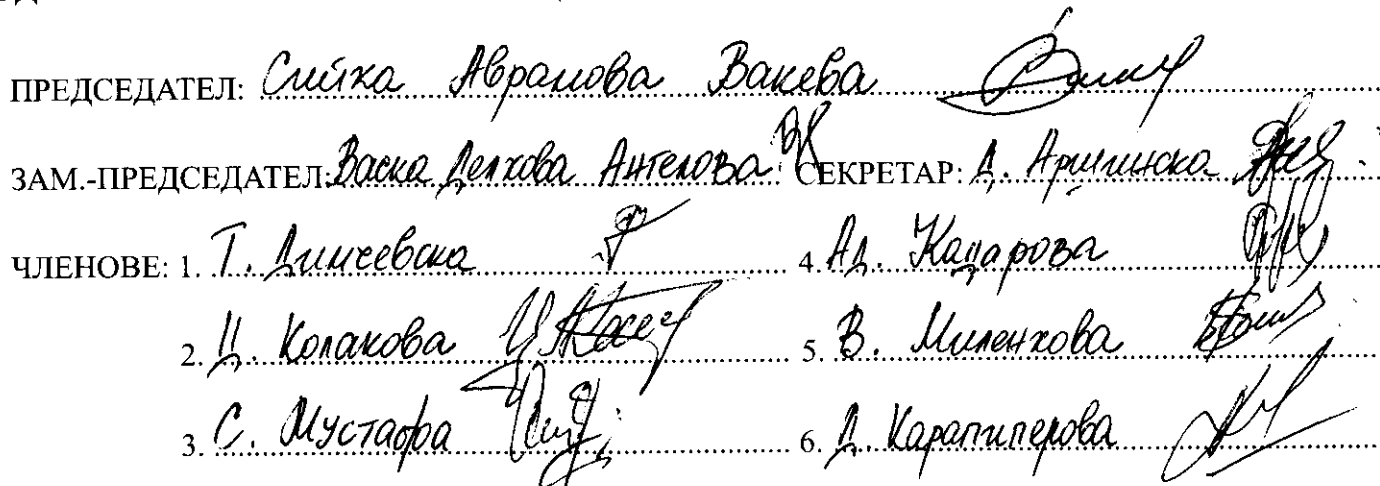 ПРЕДСЕДАТЕЛ: Сийка Аврамова Вакева
ЗАМ.-ПРЕДСЕДАТЕЛ: Васка Делкова Ангелова СЕКРЕТАР: Д.
ЧЛЕНОВЕ: 1. Т. Димчевска 4. Ад. Кацарова
2. Ц. Колакова 5. В. Миленкова
3. С. Мустафа 6. Д. Карапиперова